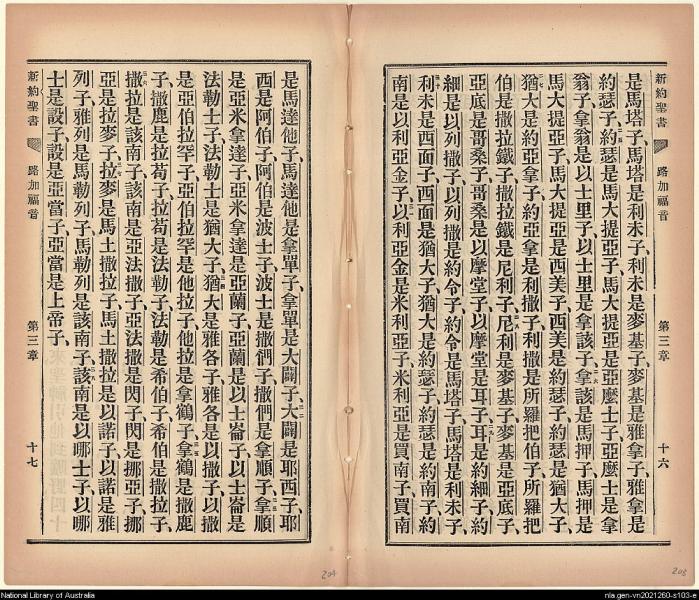 新約聖書 路加福音 第三章 十六
是馬塔子、馬塔是利未子、利未是麥基子、麥基是雅拿子、雅拿是
約瑟子、約瑟是馬大提亞子、馬大提亞是亞麼士子、亞麼士是拿
翁子、拿翁是以士里子、以士里是拿該子、拿該是馬押子、馬押是
馬大提亞子、馬大提亞是西美子、西美是約瑟子、約瑟是猶大子、
猶大是約亞拿子、約亞拿是利撒子、利撒是所羅把伯子、所羅把
伯是撒拉鐵子、撒拉鐵是尼利子、尼利是麥基子、麥基是亞底子、
亞底是哥桑子、哥桑是以摩堂子、以摩堂是耳子、耳是約細子、約
細是以列撒子、以列撒是約令子、約令是馬塔子、馬塔是利未子、
利未是西面子、西面是猶大子、猶大是約瑟子、約瑟是約南子、約
南是以利亞金子、以利亞金是米利亞子、米利亞是買南子、買南
是馬達他子、馬達他是拿單子、拿單是大闢子、大闢是耶西子、耶
西是阿伯子、阿伯是波士子、波士是撒們子、撒們是拿順子、拿順
是亞米拿達子、亞米拿達是亞蘭子、亞蘭是以士崙子、以士崙是
法勒士子、法勒士是猶大子、猶大是雅各子、雅各是以撒子、以撒
是亞伯拉罕子、亞伯拉罕是他拉子、他拉是拿鶴子、拿鶴是撒鹿
子、撒鹿是拉苟子、拉苟是法勒子、法勒是希伯子、希伯是撒拉子、
撒拉是該南子、該南是亞法撒子、亞法撒是閃子、閃是挪亞子、挪
亞是拉麥子、拉麥是馬土撒拉子、馬土撒拉是以諾子、以諾是雅
列子、雅列是馬勒列子、馬勒列是該南子、該南是以哪士子、以哪
士是設子、設是亞當子、亞當是上帝子、
新約聖書 路加福音 第三章 十七
204
203
National Library of Australia
nla.gen-vn2021260-s103-e